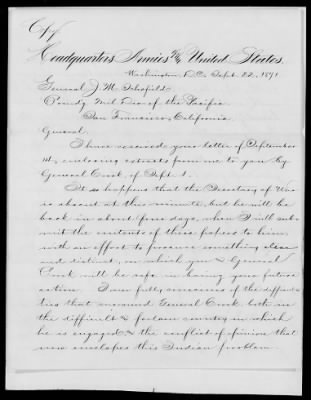 Copy
Headquarters Armies of the United States.
Washington, D.C. Sept. 22, 1871
General J. M. Schofield
Comdg Mil Div of the Pacific
San Francisco, California.
General.
I have received your letter of September
14, enclosing extracts from one to you by
General Crook of Sept. 1.
It so happens that the Secretary of War
is absent at this minute, but he will be
back in about four days, when I will sub-
mit the contents of these papers to him,
with an effort to procure something clear
and distinct, on which you & General
Crook will be safe in basing your future
action. I am fully conscious of the difficul-
ties that surround General Crook, both in
the difficult & forlorn country in which
he is engaged & the conflict of opinion that
now envelopes this Indian problem.